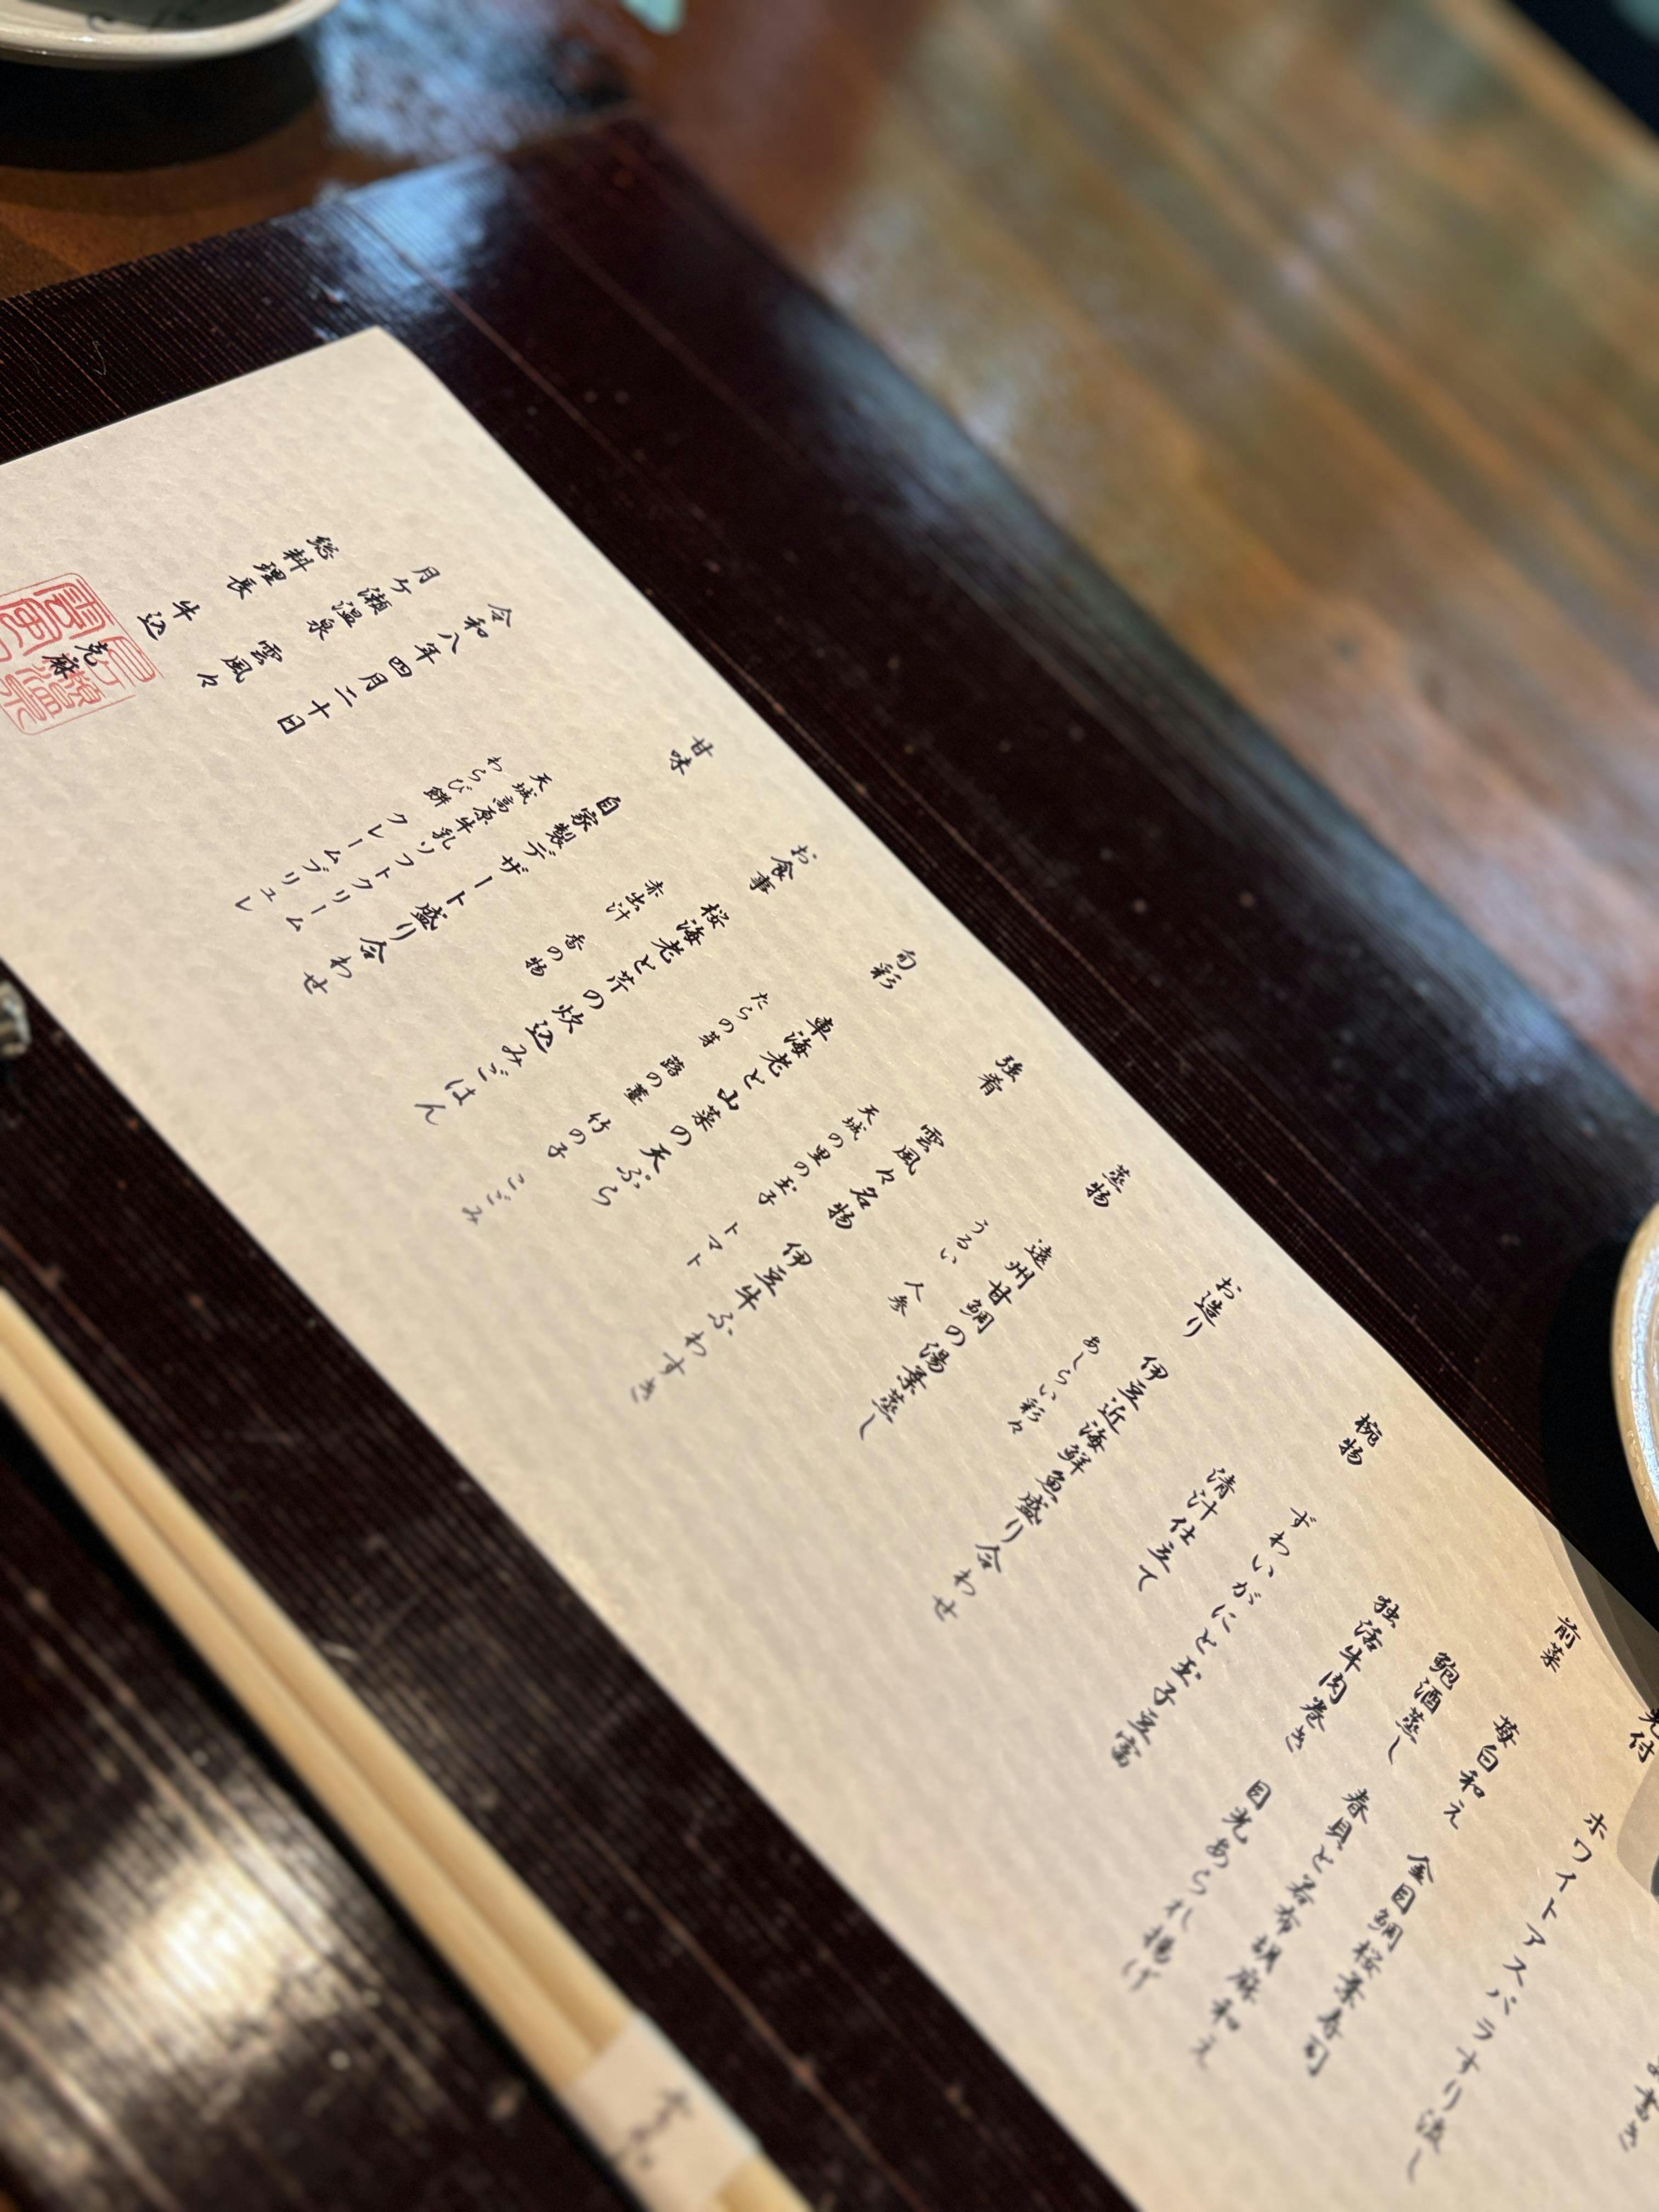 お書き
先付
ホワイトアスパラすり流し
前菜
苺白和え 金目鯛桜葉寿司
鮑酒蒸し 春貝と若布胡麻和え
独活牛肉巻き 目光あられ揚げ
椀物
ずわいがにと玉子豆富
清汁仕立て
お造り
伊豆近海鮮魚盛り合わせ
あしらい彩々
蒸物
遠州甘鯛の湯葉蒸し
うるい 人参
強肴
雲風々名物 伊豆牛ふわすき
天城の里の玉子 トマト
旬彩
車海老と山菜の天ぷら
たらの芽 蕗の薹 竹の子 こごみ
お食事
桜海老と芹の炊込みごはん
赤出汁 香の物
甘味
自家製デザート盛り合わせ
天城高原牛乳ソフトクリーム
わらび餅 クレームブリュレ
令和八年四月二十日
月ヶ瀬温泉 雲風々
総料理長 牛込 克麻